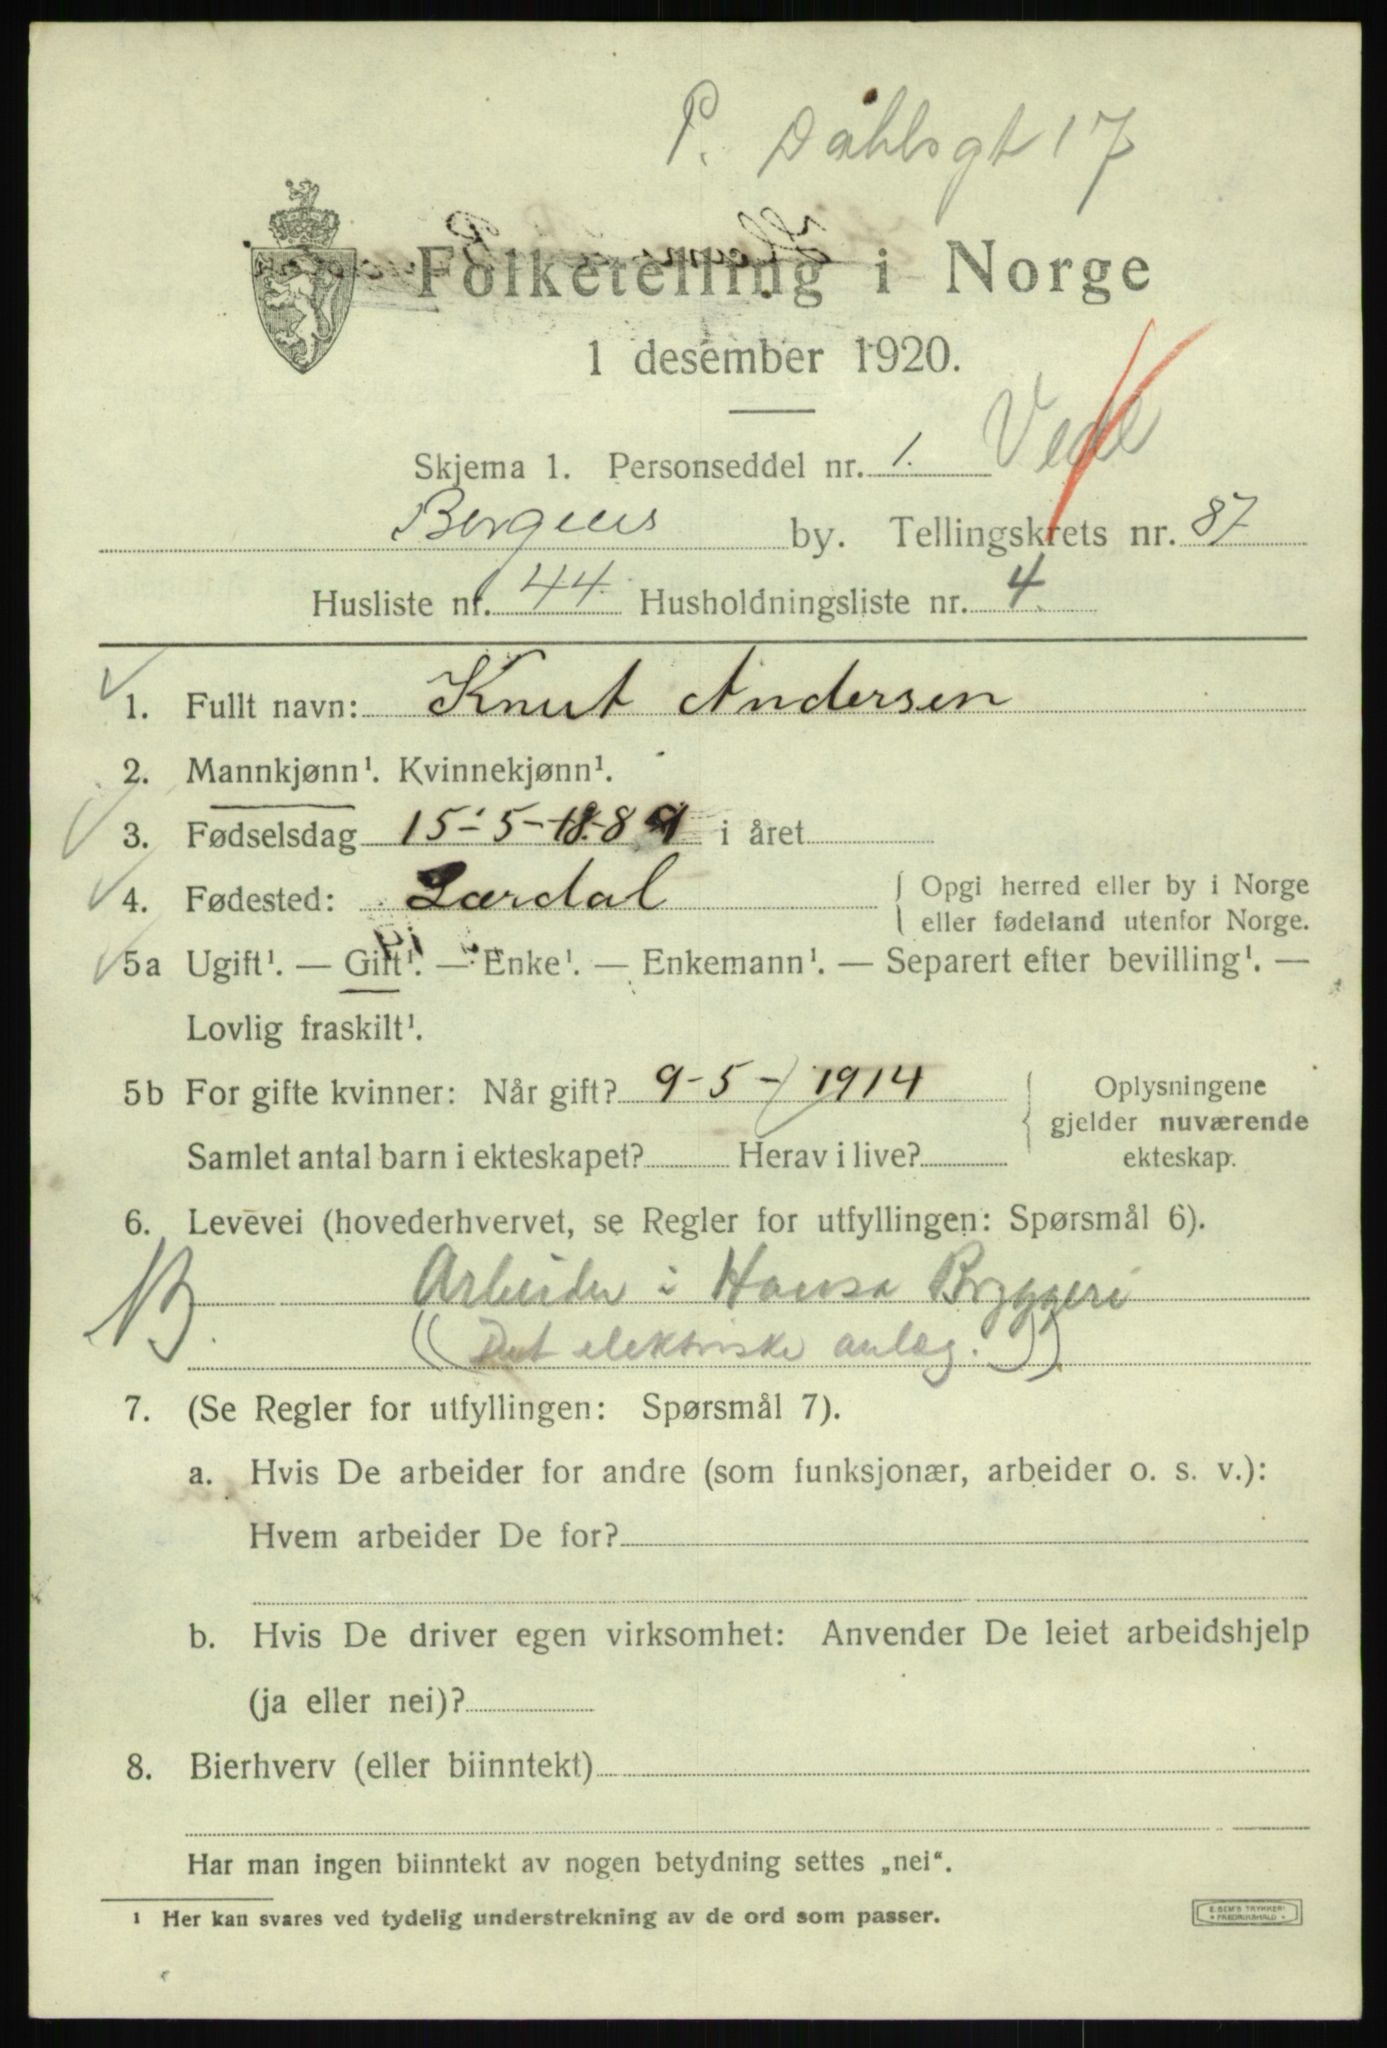 P. Dahlsgt 17
Folketelling i Norge
1 desember 1920.
Skjema 1. Personseddel nr. 1.
Bergens by. Tellingskrets nr. 87
Husliste nr. 44. Husholdningsliste nr. 4.
1. Fullt navn: Knut Andersen
2. Mannkjønn¹. Kvinnekjønn¹.
3. Fødselsdag 15-5-1889 i året
4. Fødested: Lærdal { Opgi herred eller by i Norge
eller fødeland utenfor Norge.
5a Ugift¹. — Gift¹. — Enke¹. — Enkemann¹. — Separert efter bevilling¹. —
Lovlig fraskilt¹.
5b For gifte kvinner: Når gift? 9-5-1914 { Oplysningene
gjelder nuværende
Samlet antal barn i ekteskapet? Herav i live? ekteskap.
6. Levevei (hovederhvervet, se Regler for utfyllingen: Spørsmål 6).
Arbeider i Hansa Bryggeri
(Det elektriske anlæg.)
7. (Se Regler for utfyllingen: Spørsmål 7).
a. Hvis De arbeider for andre (som funksjonær, arbeider o. s. v.):
Hvem arbeider De for?
b. Hvis De driver egen virksomhet: Anvender De leiet arbeidshjelp
(ja eller nei)?
8. Bierhverv (eller biinntekt)
Har man ingen biinntekt av nogen betydning settes „nei“.
¹ Her kan svares ved tydelig understrekning av de ord som passer.
E. SEM'S TRYKKERI
• FREDRIKSHALD •